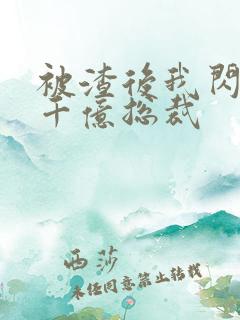 被渣後我閃
千億總裁
西莎
未经同意禁止转载